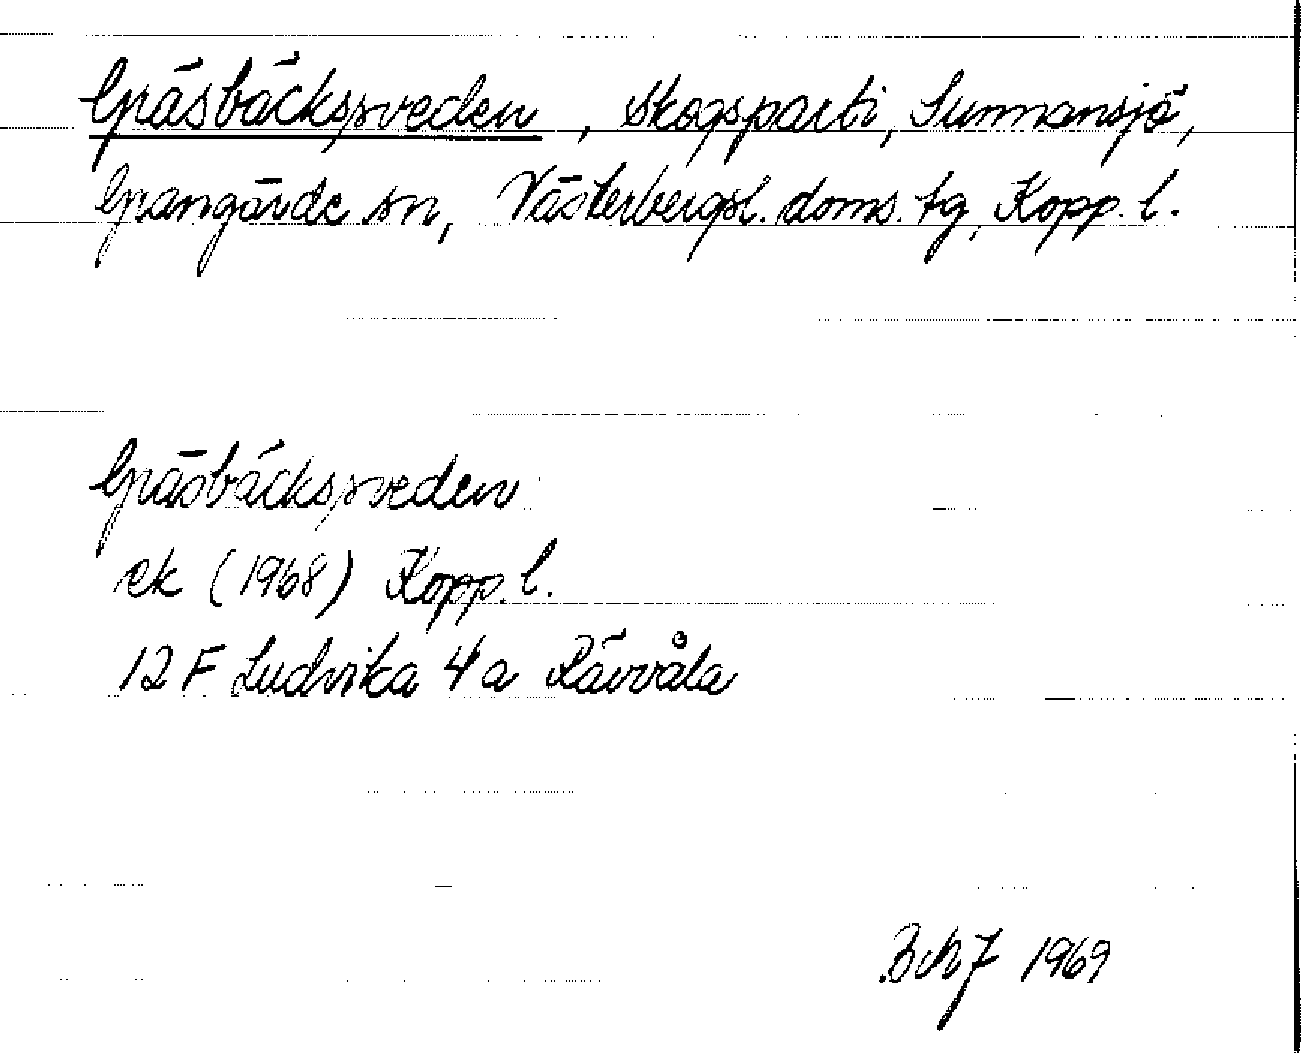 Gräsbäckssveden, Skogsparti, Sunnansjö,
Grangärde sn, Västerbergsl. doms. tg, Kopp. l.
Gräsbäckssveden
ek (1968) Kopp. l.
12 F Ludvika 4 a Rävvåla
1969